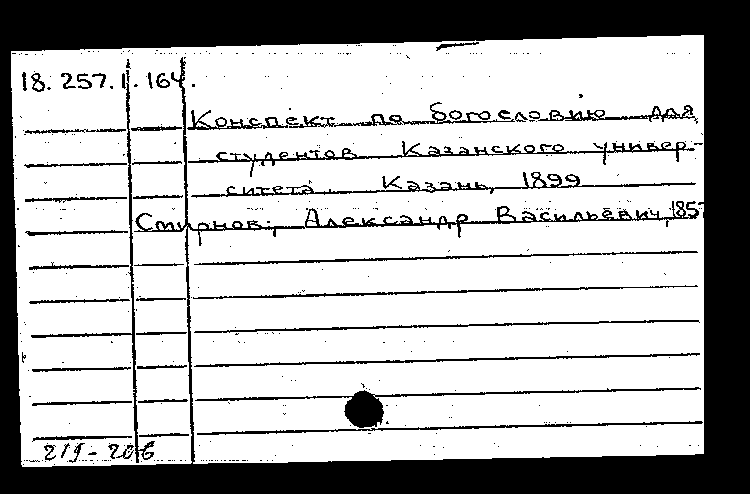 18.257.1.164.
Конспект по богословию для
студентов Казанского универ-
ситета. Казань, 1899
Смирнов, Александр Васильевич, 1857
219-206